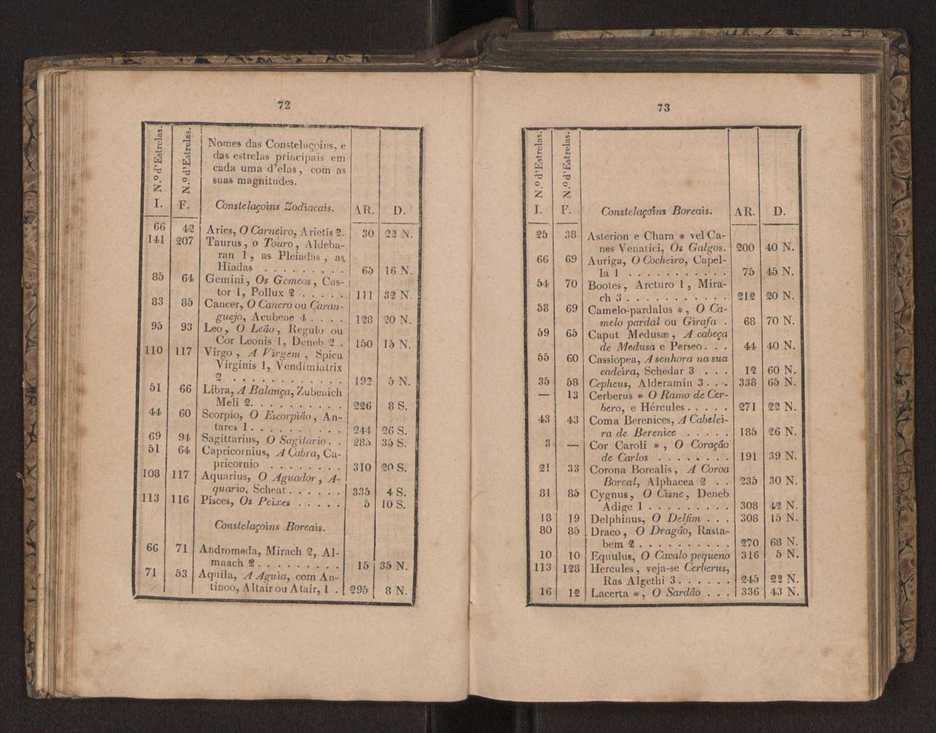 72
N.º d'Estrelas. N.º d'Estrelas. Nomes das Constelaçoins, e
das estrelas principais em
cada uma d'elas, com as
suas magnitudes.
I. F. Constelaçoins Zodiacais. AR. D.
66 42 Aries, O Carneiro, Arietis 2. 30 22 N.
141 207 Taurus, o Touro, Aldeba-
ran 1, as Pleiadas, as
Hiadas . . . . . . . . . 65 16 N.
85 64 Gemini, Os Gemeos, Cas-
tor 1, Pollux 2 . . . . . 111 32 N.
83 85 Cancer, O Cancro ou Caran-
guejo, Acubene 4 . . . . 128 20 N.
95 93 Leo, O Leão, Regulo ou
Cor Leonis 1, Deneb 2 . 150 15 N.
110 117 Virgo, A Virgem, Spica
Virginis 1, Vendimiatrix
2 . . . . . . . . . . . . 192 5 N.
51 66 Libra, A Balança, Zubenich
Meli 2. . . . . . . . . . 226 8 S.
44 60 Scorpio, O Escorpião, An-
tares 1 . . . . . . . . . . 244 26 S.
69 94 Sagittarius, O Sagitario . . 285 35 S.
51 64 Capricornius, A Cabra, Ca-
pricornio . . . . . . . . 310 20 S.
108 117 Aquarius, O Aguador, A-
quario, Scheat . . . . . . 335 4 S.
113 116 Pisces, Os Peixes . . . . . 5 10 S.
Constelaçoins Boreais.
66 71 Andromeda, Mirach 2, Al-
maach 2 . . . . . . . . . 15 35 N.
71 53 Aquila, A Aguia, com An-
tinoo, Altair ou Atair, 1 . 295 8 N.
73
N.º d'Estrelas. N.º d'Estrelas.
I. F. Constelaçoins Boreais. AR. D.
25 38 Asterion e Chara * vel Ca-
nes Venatici, Os Galgos. 200 40 N.
66 69 Auriga, O Cocheiro, Capel-
la 1 . . . . . . . . . . . 75 45 N.
54 70 Bootes, Arcturo 1, Mira-
ch 3 . . . . . . . . . . . 212 20 N.
58 69 Camelo-pardalus *, O Ca-
melo pardal ou Girafa . 68 70 N.
59 65 Caput Medusæ, A cabeça
de Medusa e Perseo. . . 44 40 N.
55 60 Cassiopea, A senhora na sua
cadeira, Schedar 3 . . . 12 60 N.
35 58 Cepheus, Alderamin 3 . . . 338 65 N.
— 13 Cerberus * O Ramo de Cer-
bero, e Hércules . . . . . 271 22 N.
43 43 Coma Berenices, A Cabelei-
ra de Berenice . . . . . 185 26 N.
3 — Cor Caroli *, O Coração
de Carlos . . . . . . . . 191 39 N.
21 33 Corona Borealis, A Coroa
Boreal, Alphacea 2 . . 235 30 N.
81 85 Cygnus, O Cisne, Deneb
Adige 1 . . . . . . . . . 308 42 N.
18 19 Delphinus, O Delfim . . . 308 15 N.
80 85 Draco, O Dragão, Rasta-
bem 2 . . . . . . . . . . 270 68 N.
10 10 Equulus, O Cavalo pequeno 316 5 N.
113 128 Hercules, veja-se Cerberus,
Ras Algethi 3 . . . . . . 245 22 N.
16 12 Lacerta *, O Sardão . . . 336 43 N.